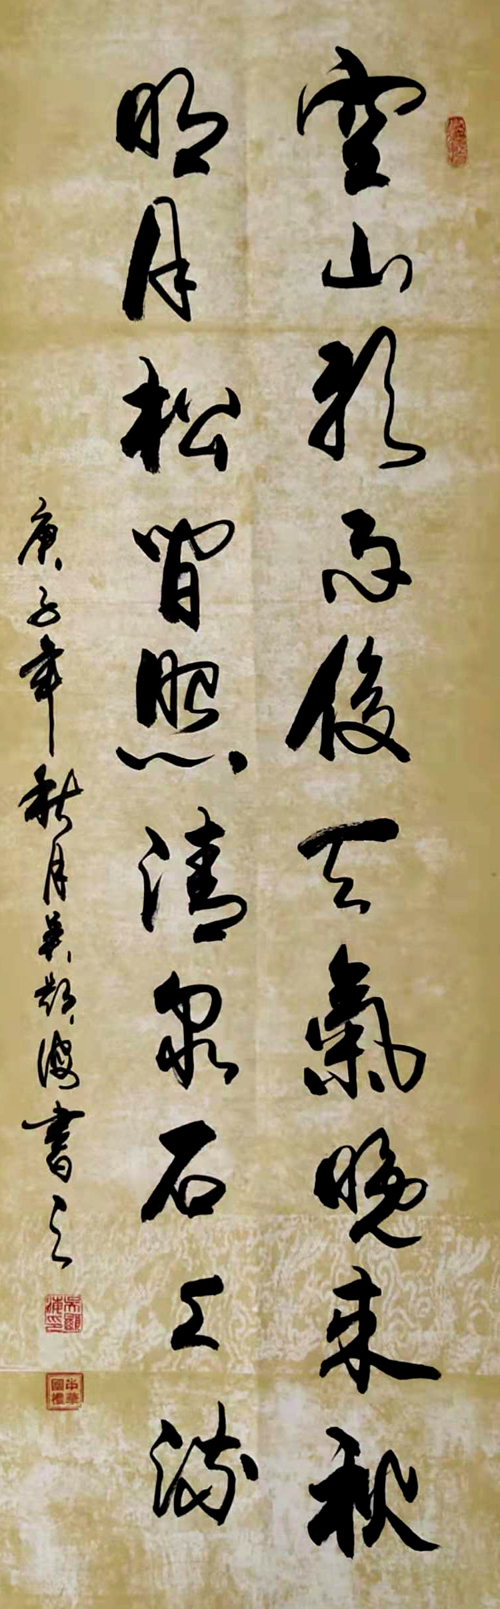 空山新雨後天氣晚來秋
明月松間照清泉石上流
庚子年秋月吴顯書之